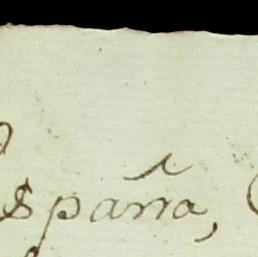 España,